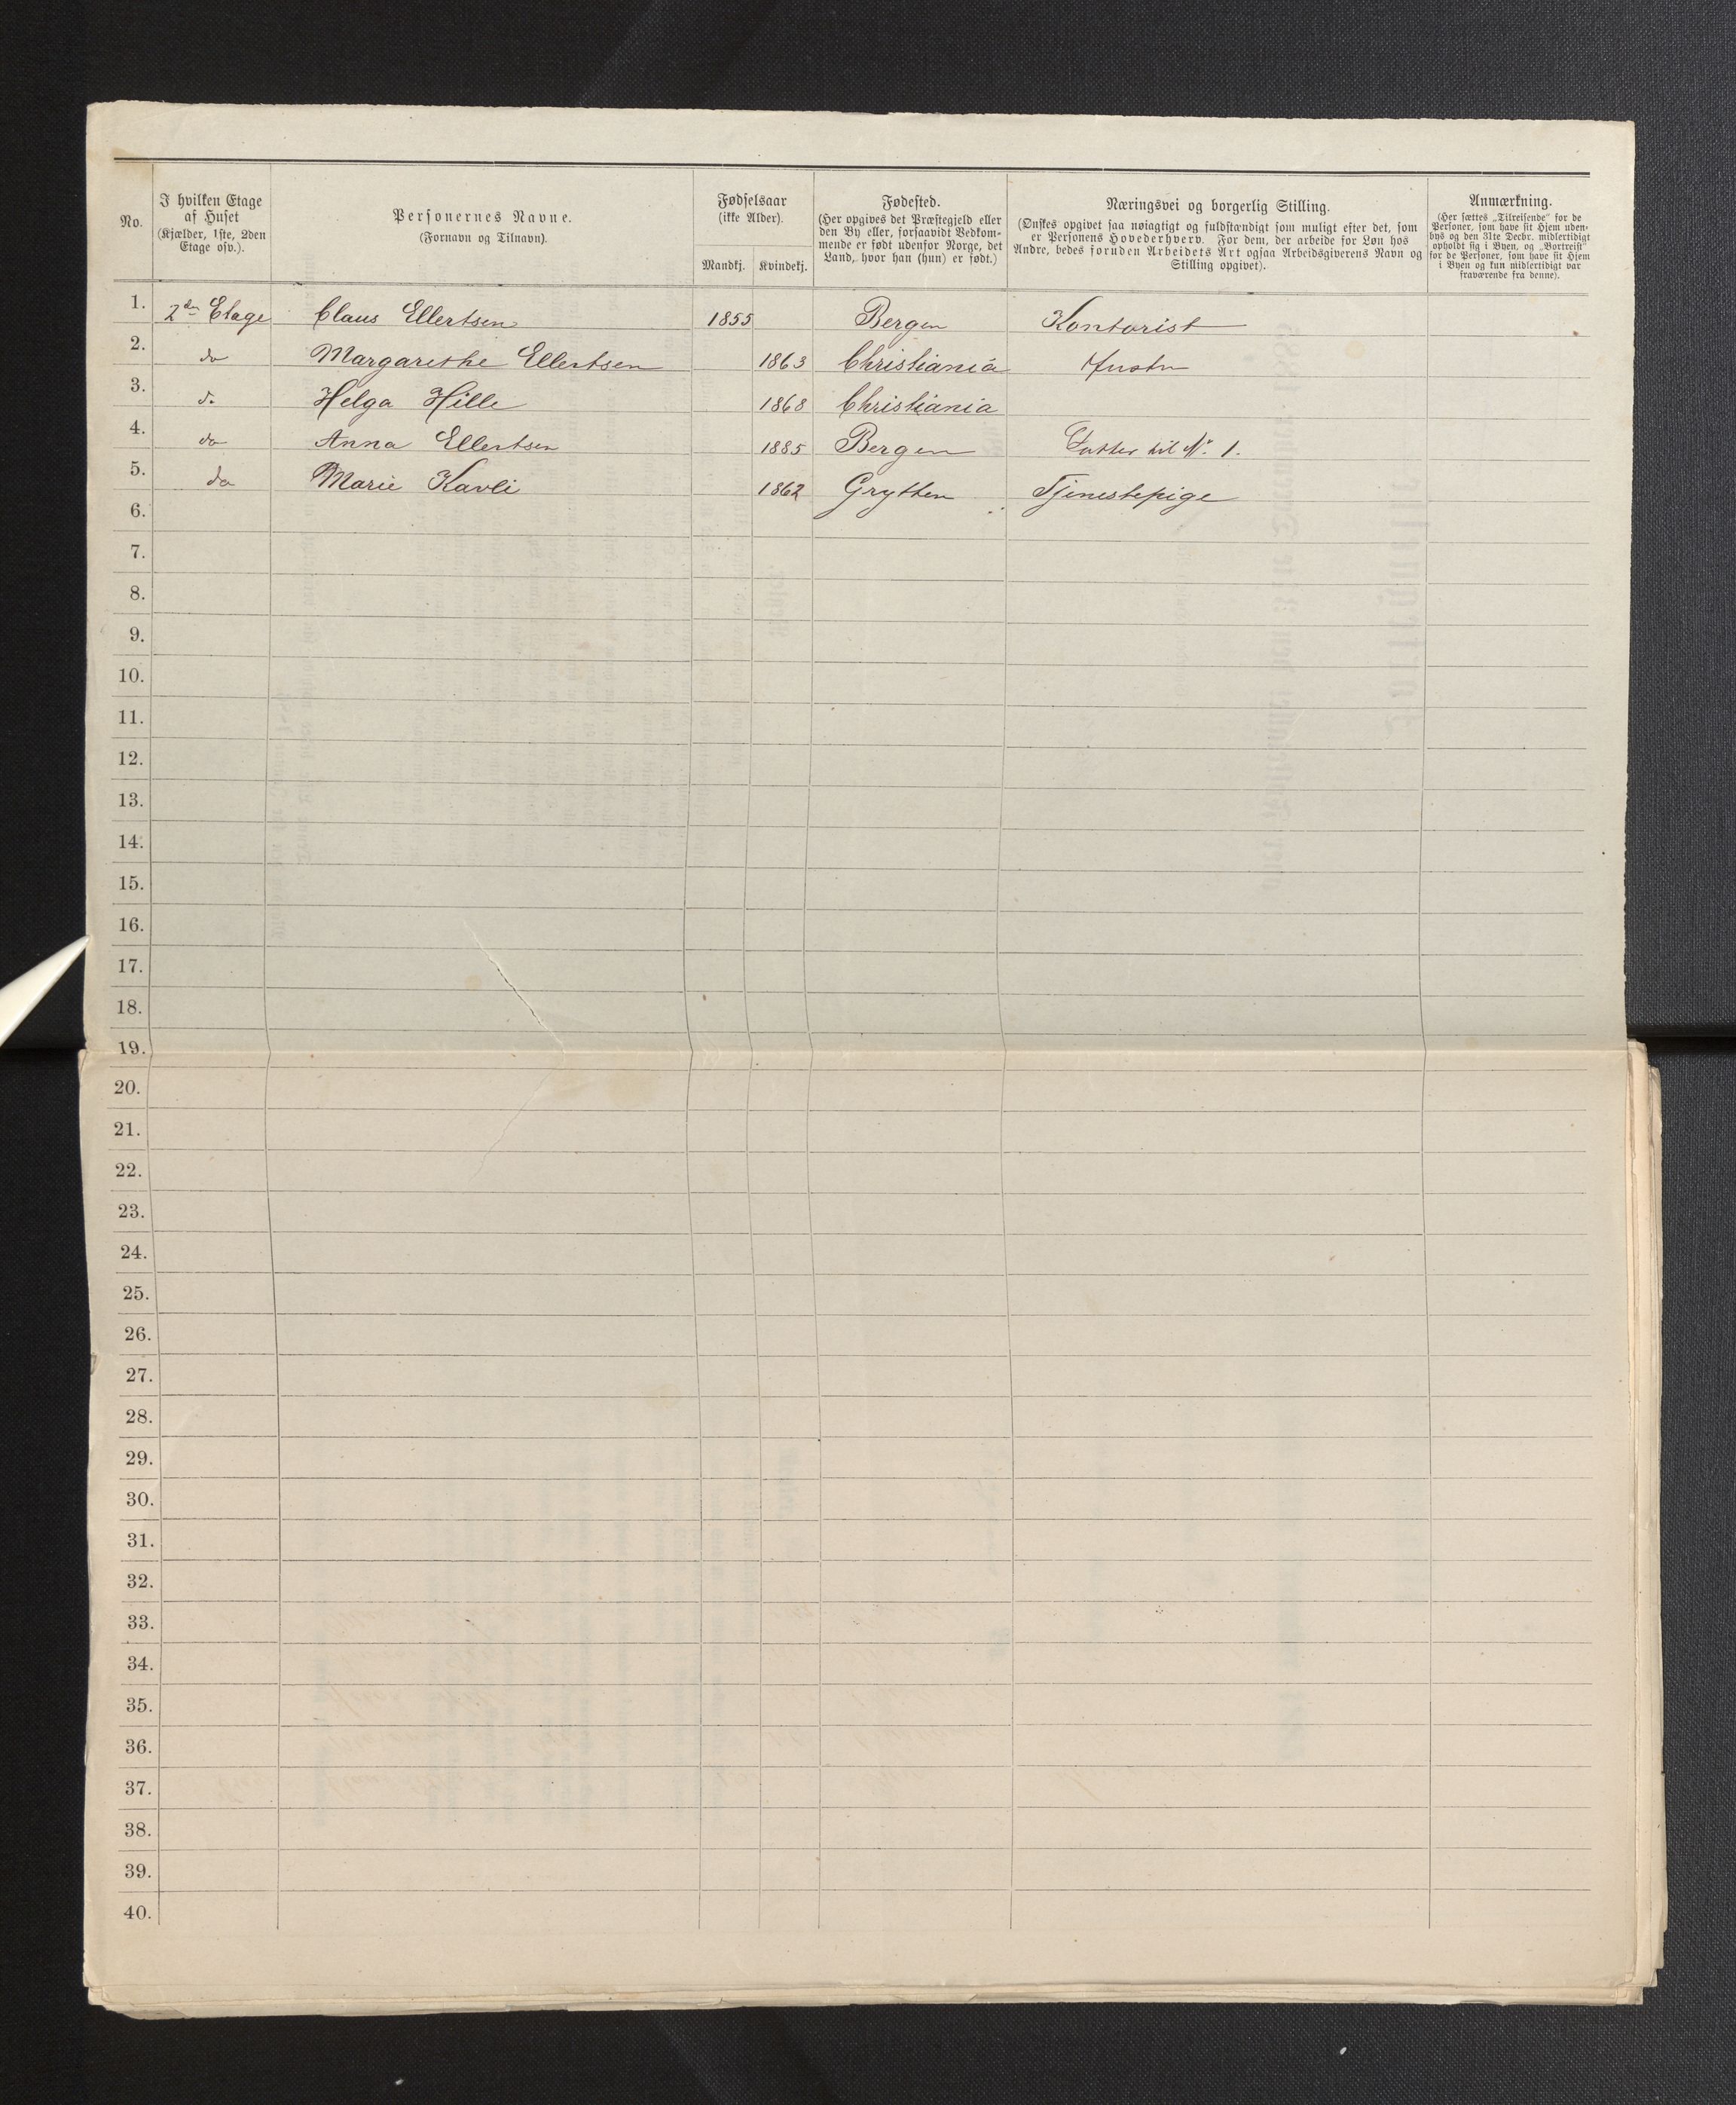 No.
I hvilken Etage
af Huset
(Kjælder, 1ste, 2den
Etage osv.).
Personernes Navne.
(Fornavn og Tilnavn).
Fødselsaar
(ikke Alder).
Mandkj. Kvindekj.
Fødested.
(Her opgives det Præstegjeld eller
den By eller, forsaavidt Vedkom-
mende er født udenfor Norge, det
Land, hvor han (hun) er født.)
Næringsvei og borgerlig Stilling.
(Ønskes opgivet saa nøiagtigt og fuldstændigt som muligt efter det, som
er Personens Hovederhverv. For dem, der arbeide for Løn hos
Andre, bedes foruden Arbeidets Art ogsaa Arbeidsgiverens Navn og
Stilling opgivet).
Anmærkning.
(Her sættes „Tilreisende“ for de
Personer, som have sit Hjem uden-
bys og den 31te Decbr. midlertidigt
opholdt sig i Byen, og „Bortreist“
for de Personer, som have sit Hjem
i Byen og kun midlertidigt var
fraværende fra denne).
1. 2den Etage Claus Ellertsen 1855 Bergen Kontorist
2. do Margarethe Ellertsen 1863 Christiania Hustru
3. do Helga Hille 1868 Christiania
4. do Anna Ellertsen 1885 Bergen Datter til No. 1.
5. do Marie Kavli 1862 Grytten Tjenestepige
6.
7.
8.
9.
10.
11.
12.
13.
14.
15.
16.
17.
18.
19.
20.
21.
22.
23.
24.
25.
26.
27.
28.
29.
30.
31.
32.
33.
34.
35.
36.
37.
38.
39.
40.